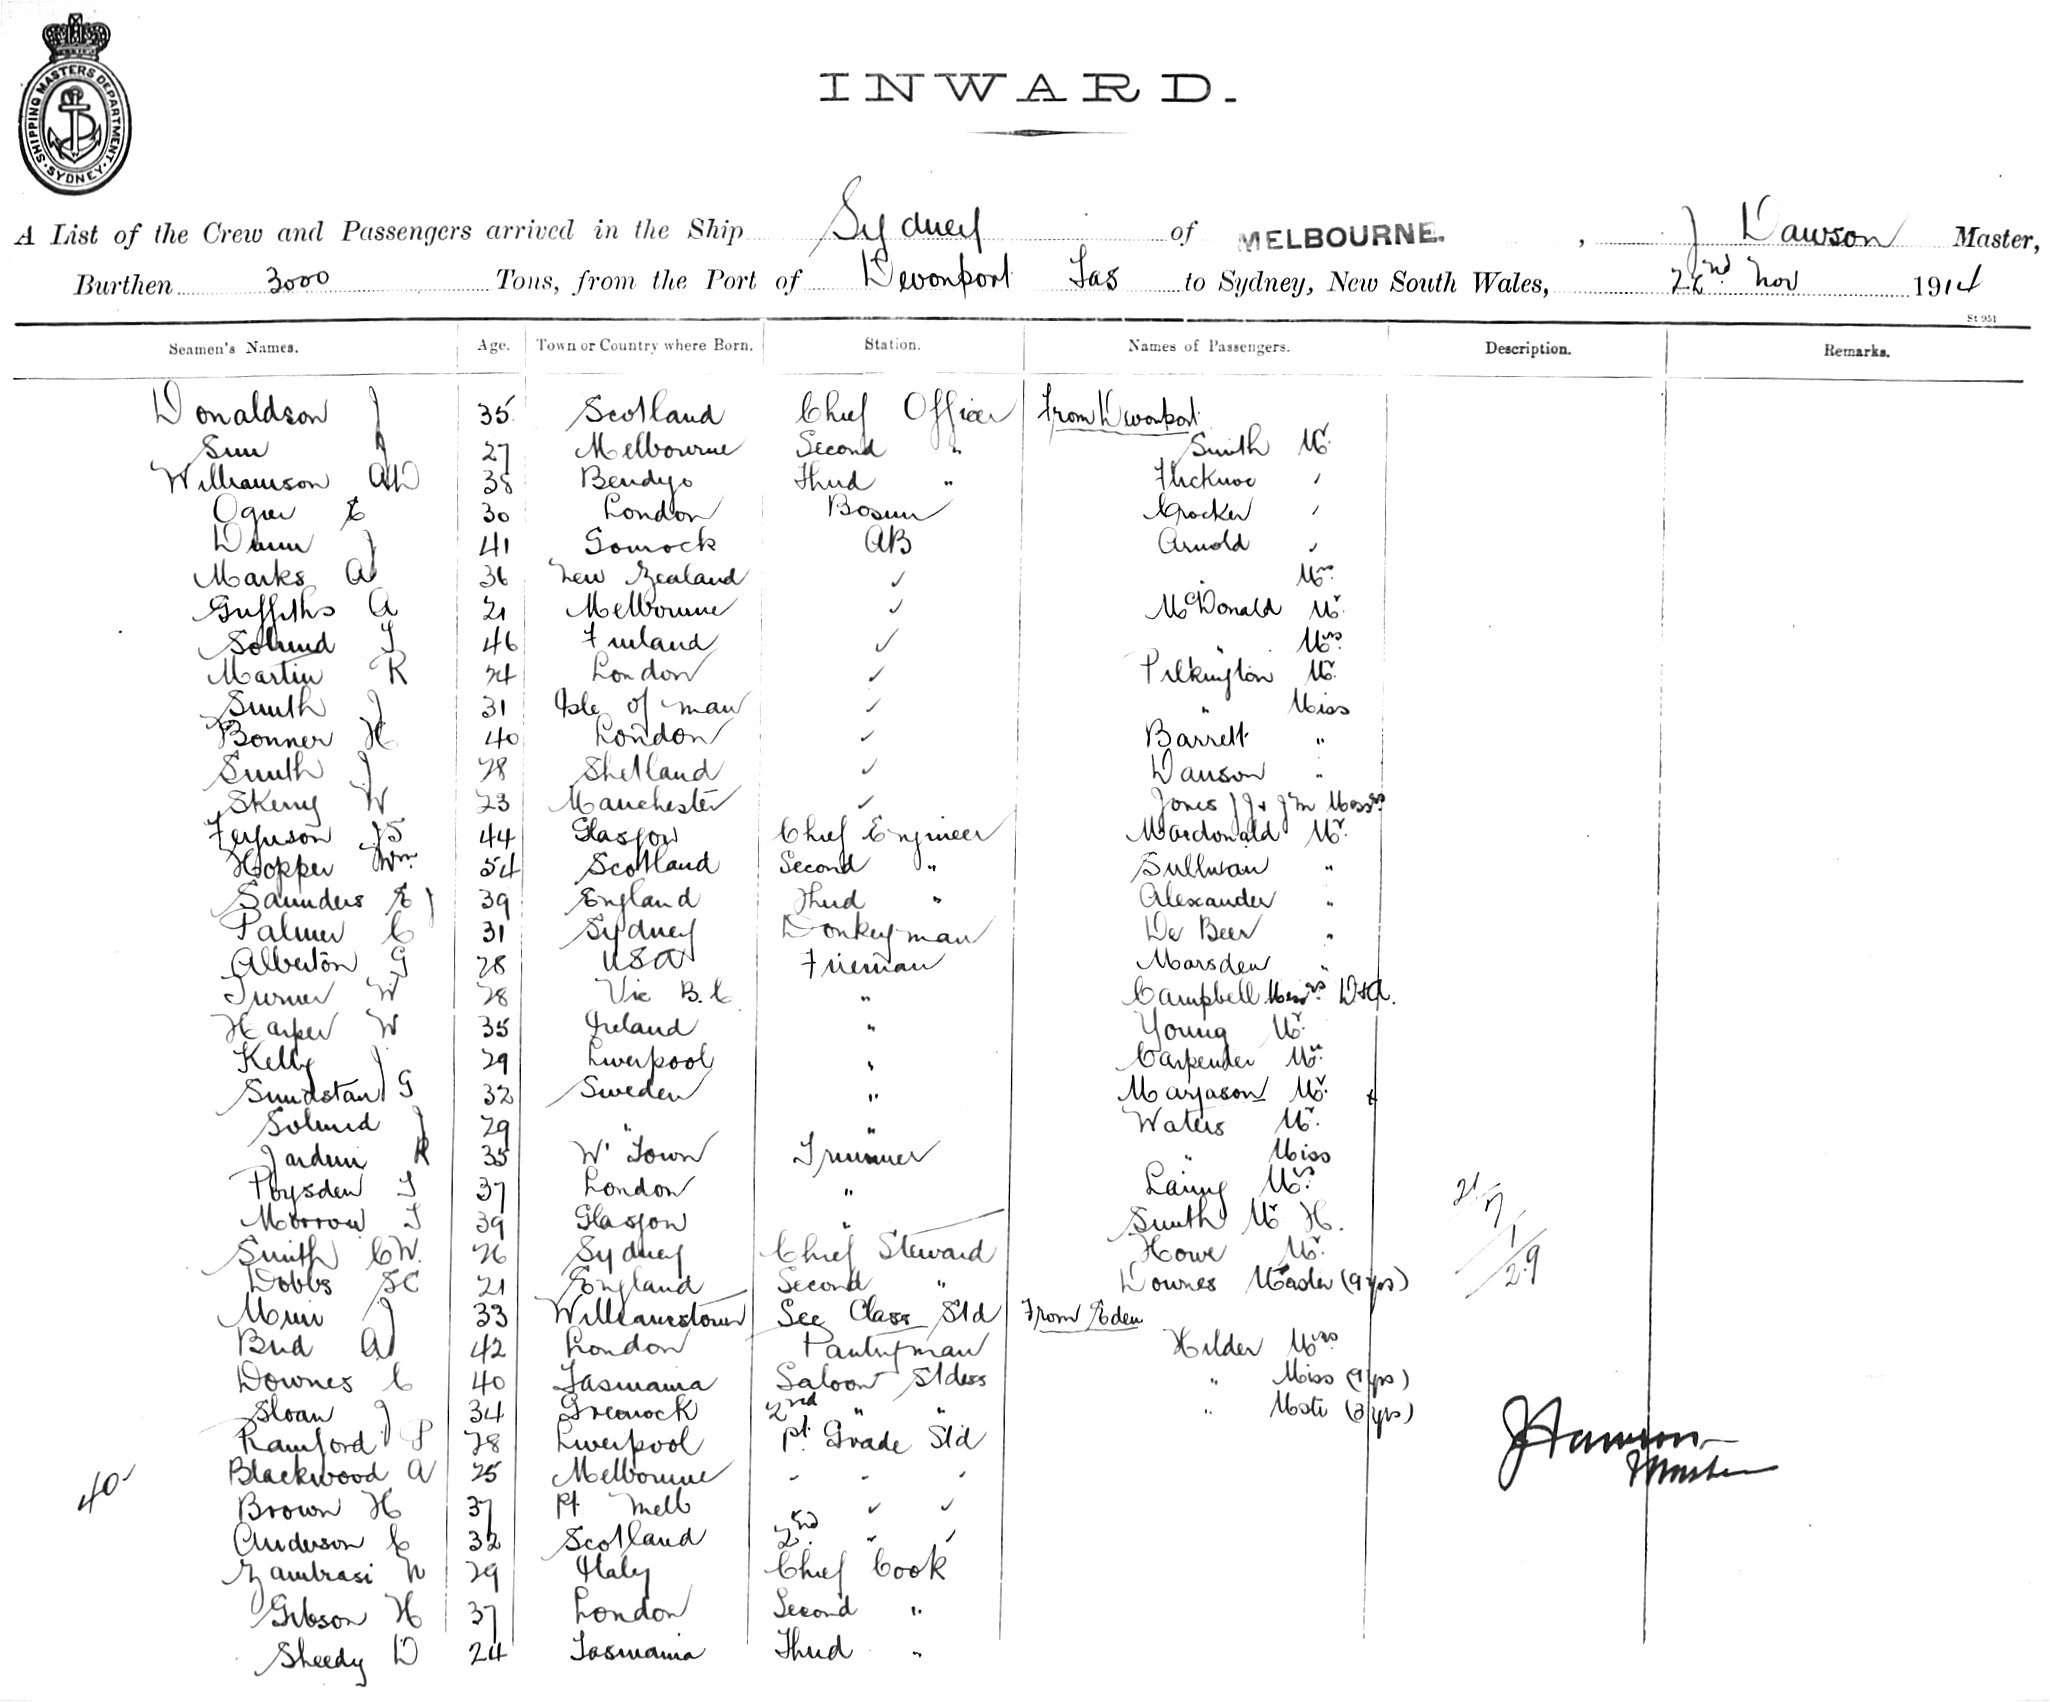 SHIPPING MASTERS DEPARTMENT. SYDNEY
INWARD.
A List of the Crew and Passengers arrived in the Ship Sydney of MELBOURNE. , J Dawson Master,
Burthen 3000 Tons, from the Port of Devonport Tas to Sydney, New South Wales, 22nd Nov 1914
St 951
Seamen's Names. Age. Town or Country where Born. Station. Names of Passengers. Description. Remarks.
Donaldson J 35 Scotland Chief Officer From Devonport
Sim J 27 Melbourne Second " Smith Mr
Williamson AD 38 Bendigo Third "
Ogier E 30 London Bosun Crocker
Dunn J 41 Gourock AB Arnold
Marks A 36 New Zealand ✓ " Mrs
Griffiths A 21 Melbourne ✓ McDonald Mr
Solund T 46 Finland ✓ " Mrs
Martin R 24 London ✓ Pilkington Mr
Smith J 31 Isle of man ✓ " Miss
Bonner H 40 London ✓ Barrett "
Smith J 28 Shetland ✓ Dawson "
Skerry W 23 Manchester ✓ Jones J J & J M Messrs
Ferguson JS 44 Glasgow Chief Engineer Macdonald Mr
Hopper Wm 54 Scotland Second " Sullivan "
Saunders EJ 39 England Third " Alexander "
Palmer C 31 Sydney Donkeyman De Beer "
Alberton G 28 USA Fireman Marsden "
Turner W 28 Vic B.C " Campbell Messrs D&A.
Harper W 35 Ireland " Young Mr
Kelly J 29 Liverpool " Carpender Mr
Sundstan G 32 Sweden " Marjason Mr
Solund J 29 " " Waters Mr
Jardin R 35 W' Town Trimmer " Miss
Poysden T 37 London " Laing Mrs
Morrow T 39 Glasgow " Smith Mr H.
Smith CW. 26 Sydney Chief Steward Howe Mr
Dobbs SC 21 England Second " Downes Master (9 yrs)
Muir J 33 Williamstown Sec Class Std From Eden
Bird A 42 London Pantryman Hilder Mrs
Downes C 40 Tasmania Saloon Stdess " Miss (9 yrs)
Sloan J 34 Greenock 2nd " " " Mstr (3 yrs)
Ramford P 28 Liverpool 1st Grade Std
J Dawson
Master
Blackwood A 25 Melbourne " " "
40
Brown H 37 Pt Melb ✓ ✓
Anderson C 32 Scotland 2nd " "
Zambrasi N 29 Italy Chief Cook
Gibson H 37 London Second "
Sheedy D 24 Tasmania Third "